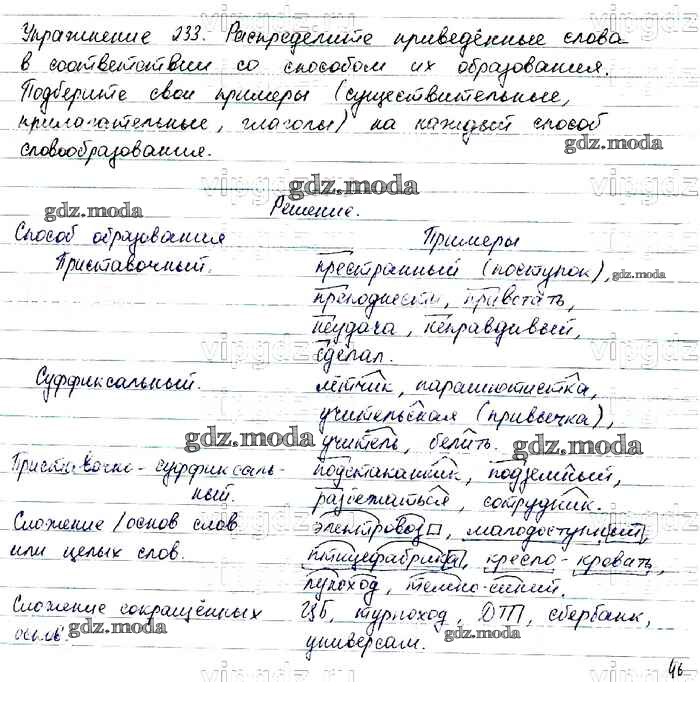 Упражнение 233. Распределите приведённые слова
в соответствии со способом их образования.
Подберите свои примеры (существительные,
прилагательные, глаголы) на каждый способ
словообразования.
gdz.moda
gdz.moda
gdz.moda
Решение.
Способ образования Примеры
Приставочный. престранный (поступок),
gdz.moda
преподнести, привстать,
неудача, неправдивый,
сделал.
Суффиксальный. лётчик, парашютистка,
учительская (привычка),
gdz.moda
учитель, белить.
gdz.moda
Приставочно-суффиксаль- подстаканник, подземный,
ный. разбежаться, сотрудник.
Сложение /основ слов электровоз, малодоступный,
или целых слов. птицефабрика, кресло-кровать,
луноход, темно-синий.
Сложение сокращённых ЦБ, турпоход, ДТП, сбербанк,
gdz.moda
универсам.
gdz.moda
46
vipgdz.ru